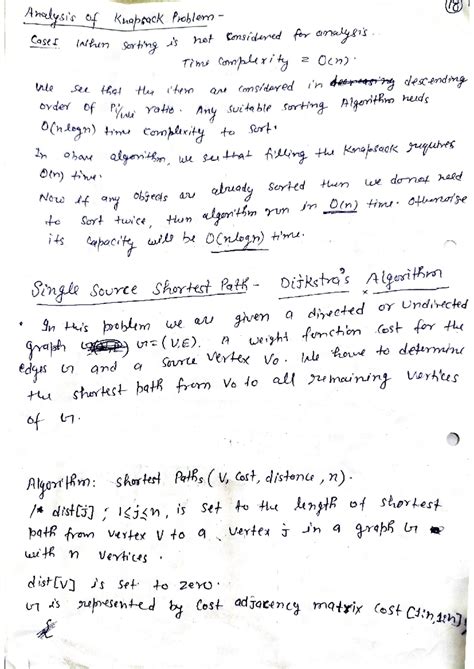 18
Analysis of Knapsack Problem -
Case I When sorting is not considered for analysis.
Time complexity = O(n).
We see that the item are considered in decreasing descending
order of Pi/wi ratio. Any suitable sorting Algorithm needs
O(nlogn) time complexity to sort.
In above algorithm, we see that filling the Knapsack requires
O(n) time.
Now if any objects are already sorted then we donot need
to sort twice, then algorithm run in O(n) time. Otherwise
its capacity will be O(nlogn) time.
Single Source Shortest Path - Dijkstra's Algorithm
• In this problem we are given a directed or Undirected
graph G = (V,E). A weight function cost for the
edges G and a source vertex Vo. We have to determine
the shortest path from Vo to all remaining vertices
of G.
Algorithm: Shortest Paths (V, Cost, distance, n).
/* dist[j] ; 1≤j≤n, is set to the length of shortest
path from vertex V to a vertex j in a graph G
with n vertices.
dist[V] is set to zero.
G is represented by Cost adjacency matrix cost [1:n,1:n];